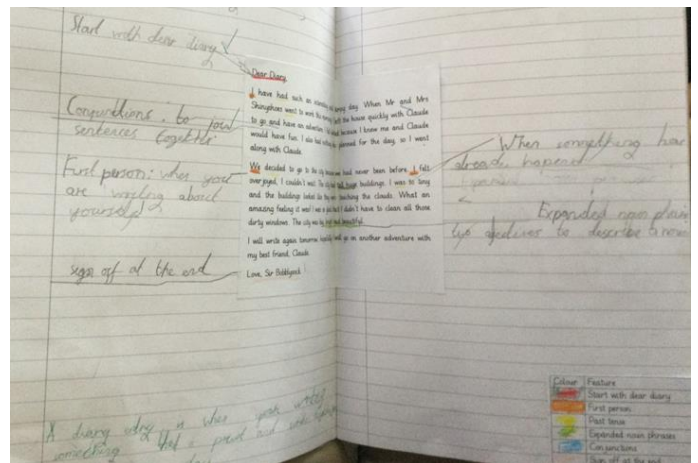 Start with dear diary
Conjunctions: to join
sentences together
First person: when you
are writing about
yourself
sign off at the end
Dear Diary,
I have had such an day. When Mr and Mrs
Shinyshoes went to work this left the house quickly with Claude
to go and have an adventure. I was because I knew me and Claude
would have fun. I also had planned for the day, so I went
along with Claude.
We decided to go to the city because we had never been before. I felt
overjoyed, I couldn't wait. The city had tall buildings. I was so tiny
and the buildings looked like they were touching the clouds. What an
amazing feeling it was! I was I didn't have to clean all those
dirty windows. The city was big and beautiful.
I will write again tomorrow, go on another adventure with
my best friend, Claude.
Love, Sir Bobblysock
When something has
already happened
Expanded noun phrase
use adjectives to describe a noun
A diary entry is when you write
something
Colour Feature
Start with dear diary
First person
Past tense
Expanded noun phrases
Conjunctions
Sign off at the end